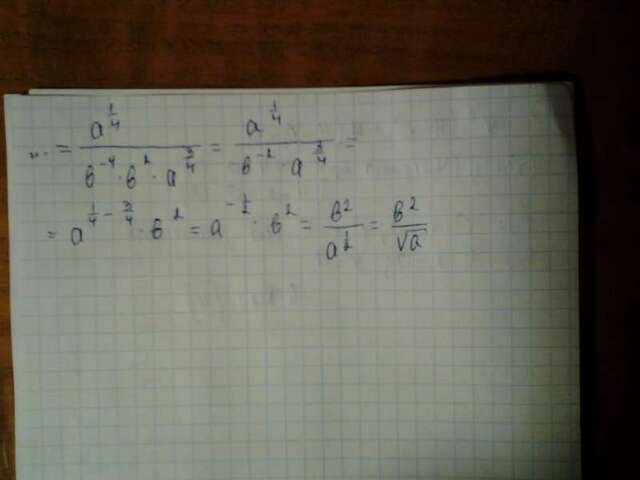 ... = a^{1/4} / (в^{-4} · в^{2} · a^{3/4}) = a^{1/4} / (в^{-2} · a^{3/4}) =
= a^{1/4 - 3/4} · в^{2} = a^{-1/2} · в^{2} = в^{2} / a^{1/2} = в^{2} / √a